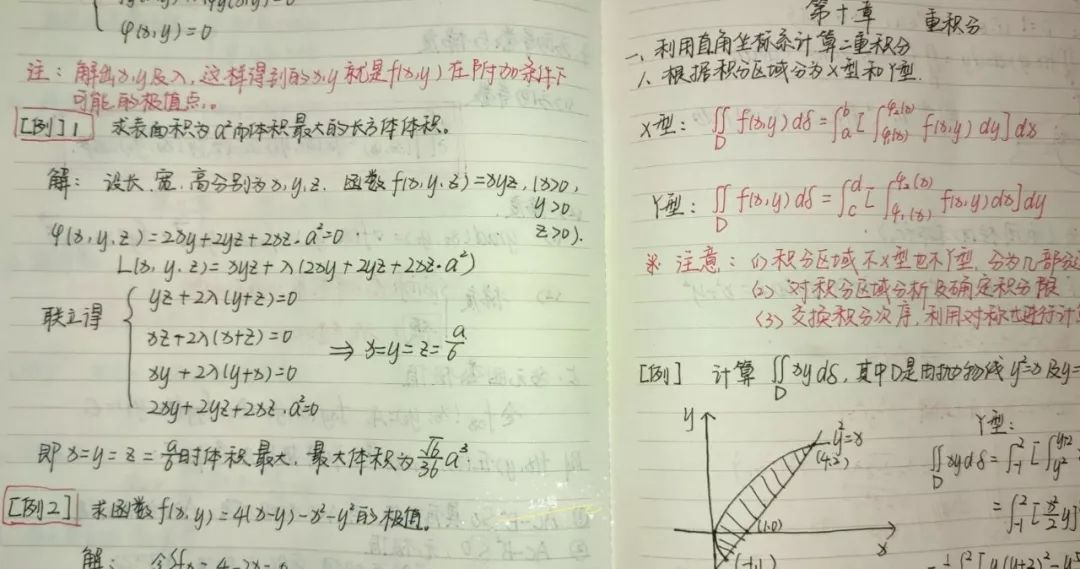 φ(x,y)=0
注：解出x,y及λ，这样得到的x,y就是f(x,y)在附加条件下
可能的极值点。
[例]1 求表面积为a²而体积最大的长方体体积。
解：设长、宽、高分别为x,y,z. 函数f(x,y,z)=xyz, (x>0,
y>0
z>0).
φ(x,y,z)=2xy+2yz+2xz-a²=0
L(x,y,z)=xyz+λ(2xy+2yz+2xz-a²)
联立得
yz+2λ(y+z)=0
xz+2λ(x+z)=0
xy+2λ(y+x)=0
2xy+2yz+2xz-a²=0
⇒ x=y=z=a/6
即x=y=z=a/6时体积最大，最大体积为√6/36 a³
[例2] 求函数f(x,y)=4(x-y)-x²-y²的极值。
解：
第十章 重积分
一、利用直角坐标系计算二重积分
1. 根据积分区域分为X型和Y型.
X型：∬_D f(x,y)dδ=∫_a^b[∫_{φ₁(x)}^{φ₂(x)} f(x,y)dy]dx
Y型：∬_D f(x,y)dδ=∫_c^d[∫_{φ₁(x)}^{φ₂(x)} f(x,y)dx]dy
※ 注意：(1)积分区域不X型也不Y型，分为几部分
(2) 对积分区域分析及确定积分限
(3) 交换积分次序，利用对称性进行计
[例] 计算∬_D xydδ，其中D是由抛物线y²=x及y=
y
y²=x
(4,2)
(1,0)
x
(-1,1)
Y型：
∬_D xydδ=∫_{-1}^2[∫_{y²}^{y+2}
=∫_{-1}^2[x²/2 y]